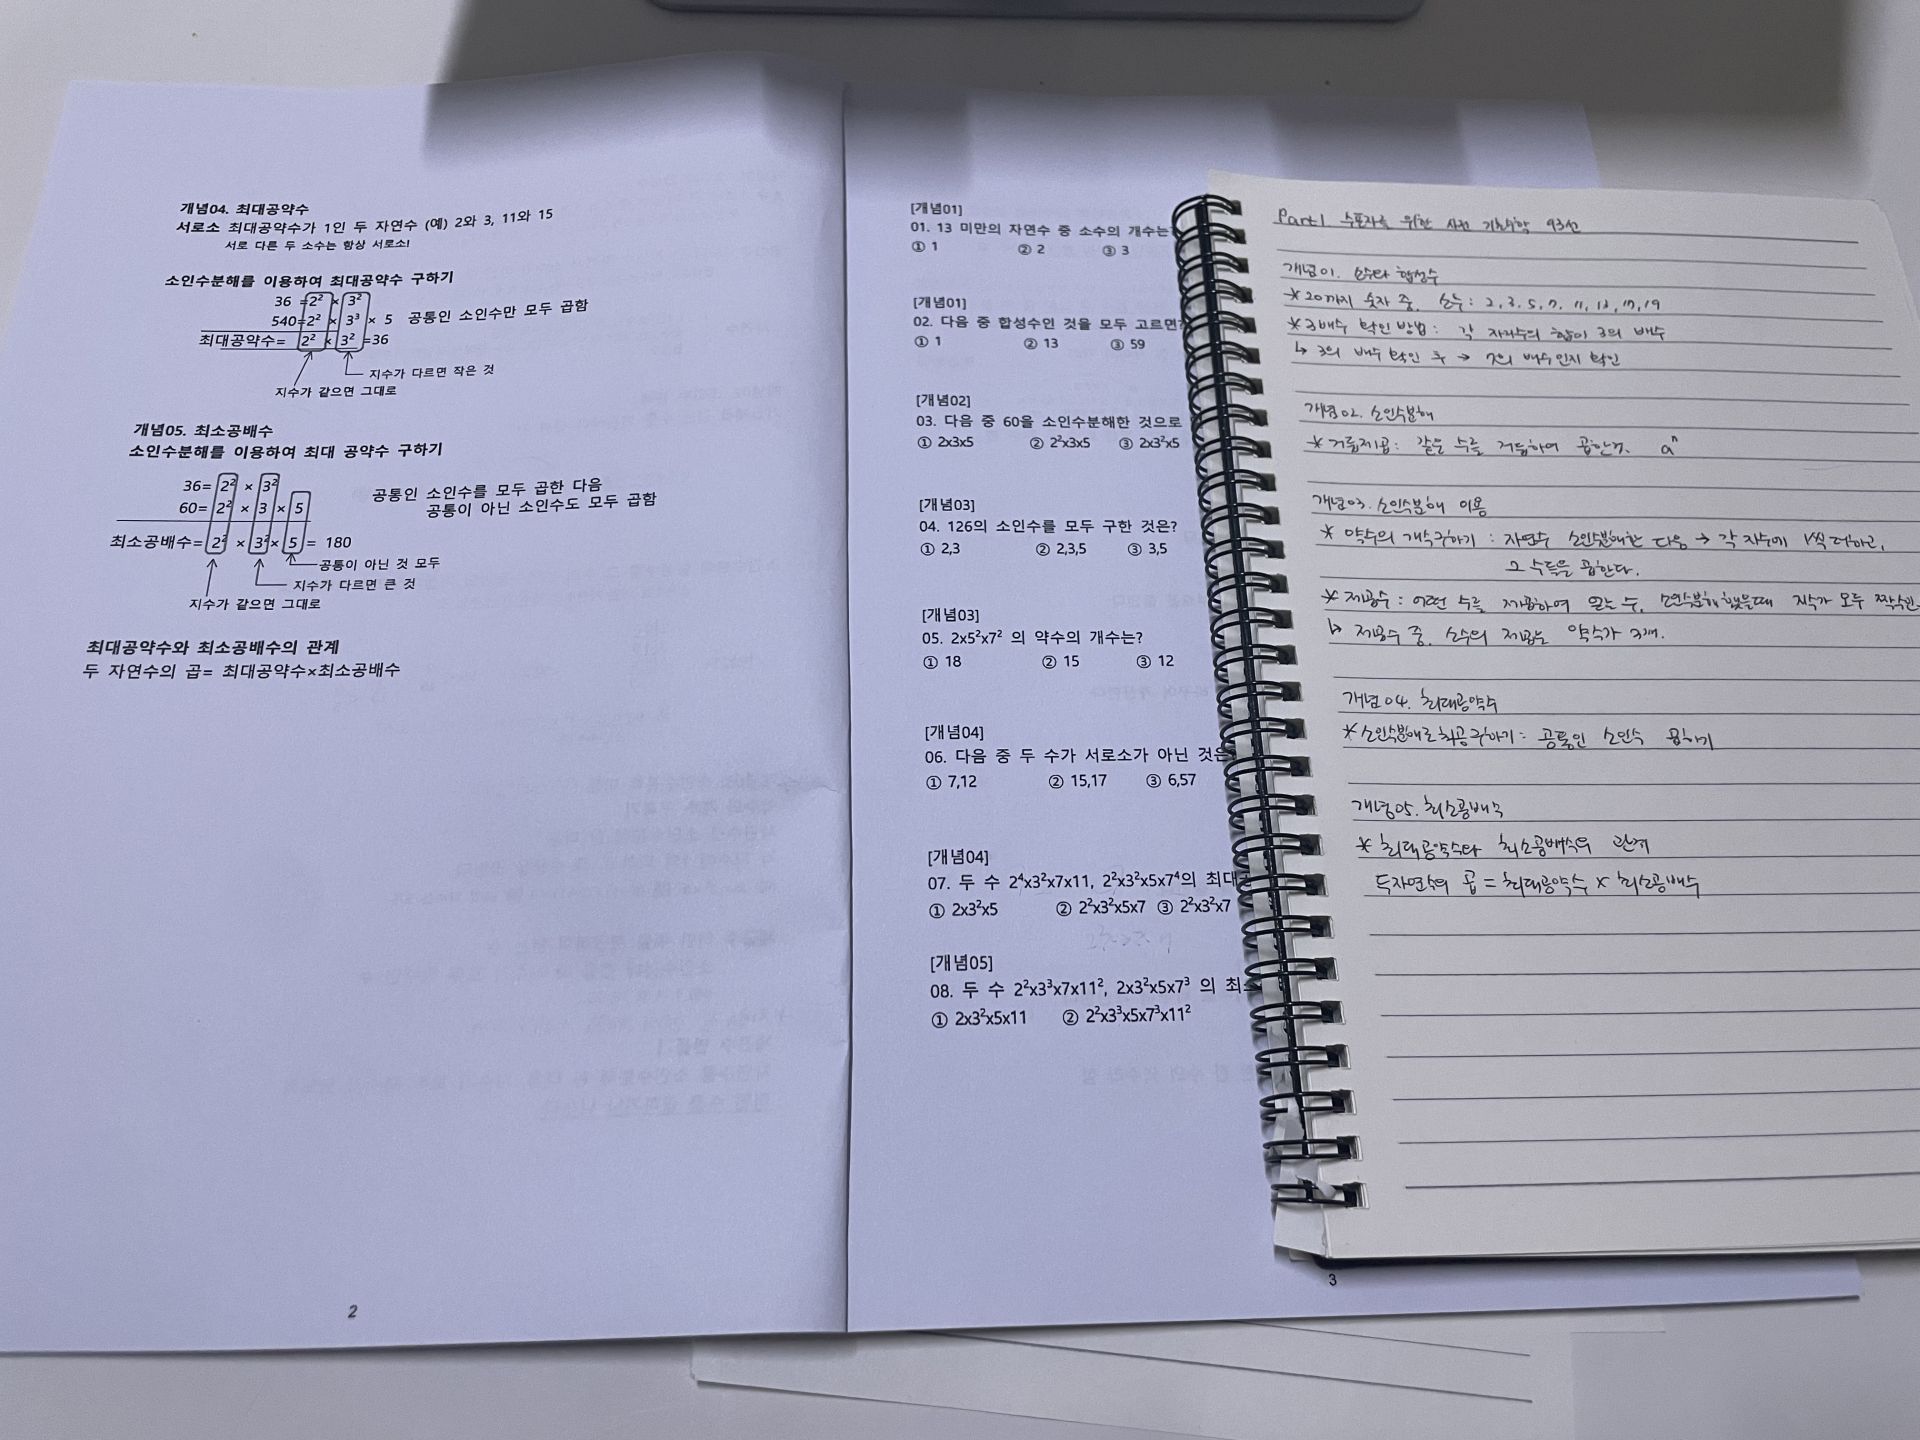 개념04. 최대공약수
서로소 최대공약수가 1인 두 자연수 (예) 2와 3, 11와 15
서로 다른 두 소수는 항상 서로소!
소인수분해를 이용하여 최대공약수 구하기
36 =2² × 3²
540=2² × 3³ × 5 공통인 소인수만 모두 곱함
최대공약수= 2² × 3² =36
지수가 다르면 작은 것
지수가 같으면 그대로
개념05. 최소공배수
소인수분해를 이용하여 최대 공약수 구하기
36= 2² × 3²
공통인 소인수를 모두 곱한 다음
60= 2² × 3 × 5
공통이 아닌 소인수도 모두 곱함
최소공배수= 2² × 3² × 5 = 180
공통이 아닌 것 모두
지수가 다르면 큰 것
지수가 같으면 그대로
최대공약수와 최소공배수의 관계
두 자연수의 곱= 최대공약수×최소공배수
2
[개념01]
01. 13 미만의 자연수 중 소수의 개수는?
① 1 ② 2 ③ 3
[개념01]
02. 다음 중 합성수인 것을 모두 고르면?
① 1 ② 13 ③ 59
[개념02]
03. 다음 중 60을 소인수분해한 것으로
① 2x3x5 ② 2²x3x5 ③ 2x3²x5
[개념03]
04. 126의 소인수를 모두 구한 것은?
① 2,3 ② 2,3,5 ③ 3,5
[개념03]
05. 2x5²x7² 의 약수의 개수는?
① 18 ② 15 ③ 12
[개념04]
06. 다음 중 두 수가 서로소가 아닌 것은
① 7,12 ② 15,17 ③ 6,57
[개념04]
07. 두 수 2⁴x3²x7x11, 2²x3²x5x7⁴의 최대
① 2x3²x5 ② 2²x3²x5x7 ③ 2²x3²x7
[개념05]
08. 두 수 2²x3³x7x11², 2x3²x5x7³ 의 최
① 2x3²x5x11 ② 2²x3³x5x7³x11²
3
Part1 수포자를 위한 사전 기초수학 93선
개념01. 소수와 합성수
* 20까지 숫자 중, 소수: 2, 3, 5, 7, 11, 13, 17, 19
* 3배수 확인 방법: 각 자리수의 합이 3의 배수
↳ 3의 배수 확인 후 → 7의 배수인지 확인
개념02. 소인수분해
* 거듭제곱: 같은 수를 거듭하여 곱한것. aⁿ
개념03. 소인수분해 이용
* 약수의 개수구하기 : 자연수 소인수분해한 다음 → 각 지수에 1씩 더하고,
그 수들을 곱한다.
* 제곱수 : 어떤 수를 제곱하여 얻는 수, 소인수분해 했을때 지수가 모두 짝수인
↳ 제곱수 중, 소수의 제곱은 약수가 3개.
개념04. 최대공약수
* 소인수분해로 최공구하기: 공통인 소인수 곱하기
개념05. 최소공배수
* 최대공약수와 최소공배수의 관계
두자연수의 곱 = 최대공약수 × 최소공배수